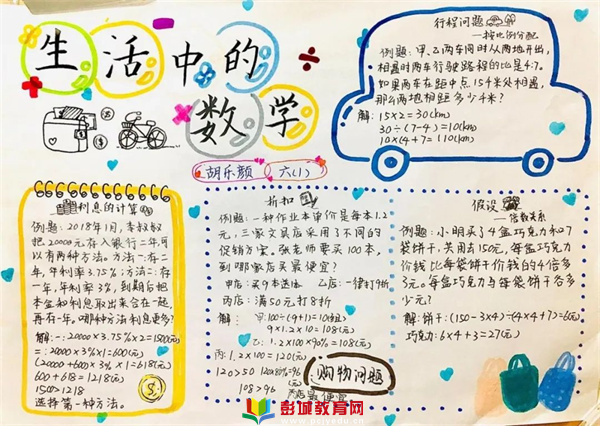 生活中的
数学
胡乐颜 六(1)
行程问题
—按比例分配
例题:甲、乙两车同时从两地开出,
相遇时两车行驶路程的比是4:7.
如果两车在距中点15千米处相遇,
那么两地相距多少千米?
解:15×2=30(km)
30÷(7-4)=10(km)
10×(4+7=110(km)
利息的计算
例题:2018年1月,李叔叔
把20000元存入银行二年可
以有两种方法。方法一:存二
年,年利率3.75%;方法二:存
一年,年利率3%,到期后把
本金和利息取出来合在一起,
再存一年。哪种方法利息更多?
解:一:20000×3.75%×2=1500元
二:20000×3%×1=600(元)
(20000+600)×3%×1=618(元)
600+618=1218(元)
1500>1218
选择第一种方法。
折扣
例题:一种作业本单价是每本1.2
元,三家文具店采用了不同的
促销方案。张老师要买100本,
到哪家店买最便宜?
甲店:买9本送1本 乙店:一律打9折
丙店:满50元打8折
解:甲:100÷(9+1)=10(组)
9×1.2×10=108(元)
乙:1.2×100×90%=108(元)
丙:1.2×100=120(元)
120>50 120×80%=96(元)
108>96
购物问题
假设
—倍数关系
例题:小明买了4盒巧克力和7
袋饼干,共用去150元,每盒巧克力
价钱比每袋饼干价钱的4倍多
3元。每盒巧克力与每袋饼干各多
少元?
解:饼干:(150-3×4)÷(4×4+7)=6(元)
巧克力:6×4+3=27(元)
彭城教育网